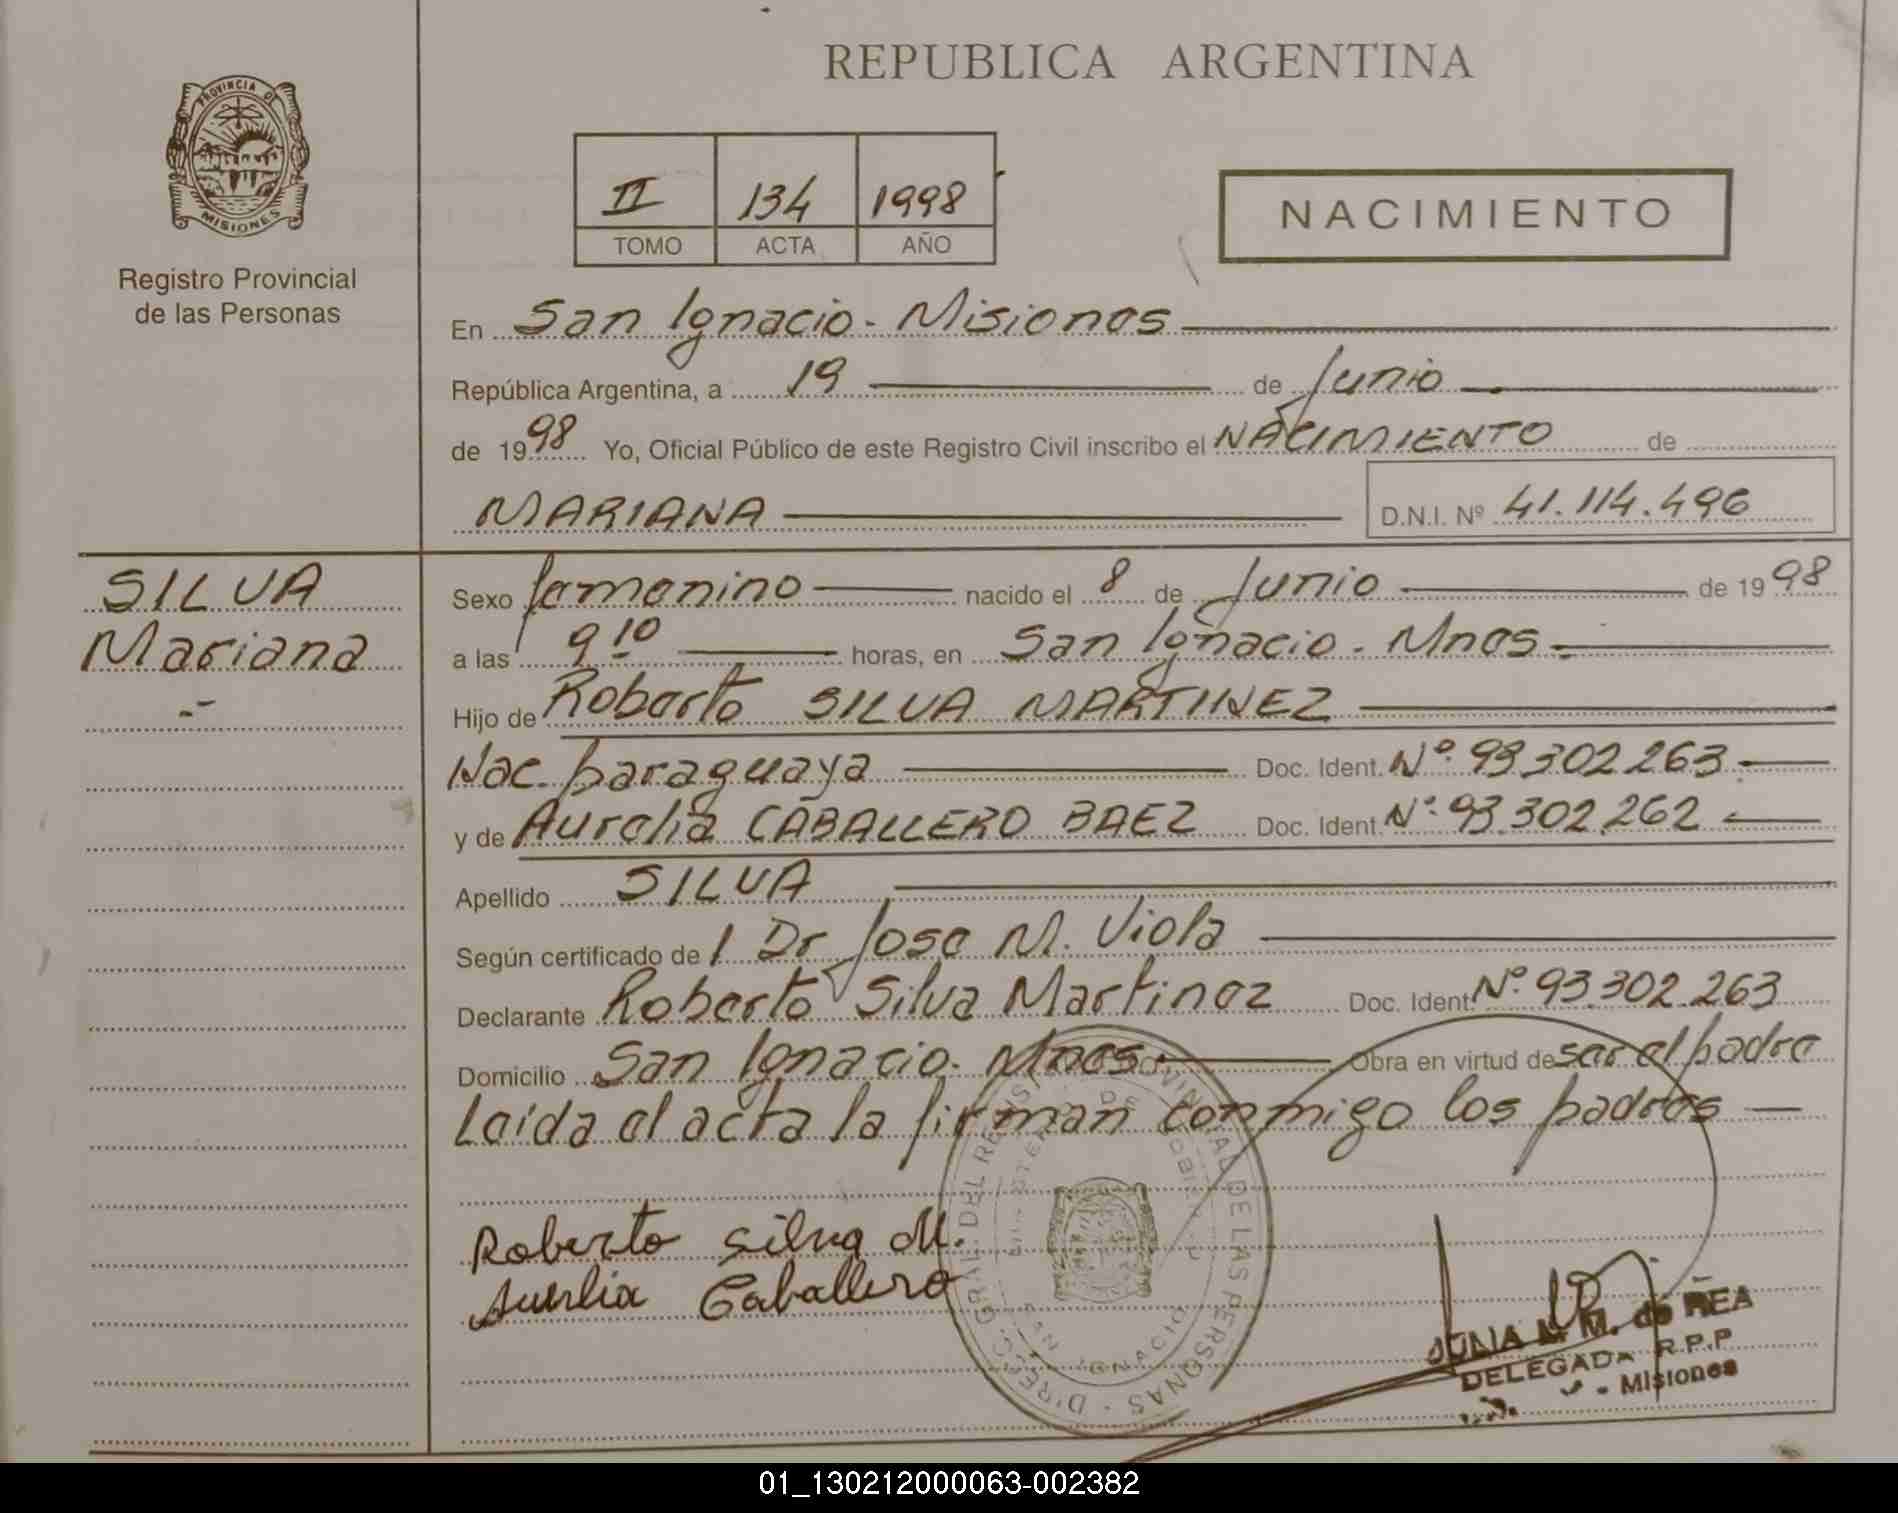 REPUBLICA ARGENTINA
PROVINCIA DE
MISIONES
Registro Provincial
de las Personas
II 134 1998
TOMO ACTA AÑO
NACIMIENTO
En San Ignacio - Misiones
República Argentina, a 19 de Junio
de 1998 Yo, Oficial Público de este Registro Civil inscribo el NACIMIENTO de
MARIANA D.N.I. Nº 41.114.496
SILVA
Mariana
Sexo femenino nacido el 8 de Junio de 1998
a las 9 10 horas, en San Ignacio - Mnes
Hijo de Roberto SILVA MARTINEZ
Nac. paraguaya Doc. Ident. Nº 93.302.263
y de Aurelia CABALLERO BAEZ Doc. Ident. Nº 93.302.262
Apellido SILVA
Según certificado de l Dr Jose M. Viola
Declarante Roberto Silva Martinez Doc. Ident. Nº 93.302.263
Domicilio San Ignacio - Mnes. Obra en virtud de ser el padre
Leída el acta la firman conmigo los padres
Roberto Silva M.
Aurelia Caballero
DIRECC. GRAL. DEL REGISTRO PROVINCIAL DE LAS PERSONAS
SAN IGNACIO
M. de REA
DELEGADA R.P.P
- Misiones
01_130212000063-002382